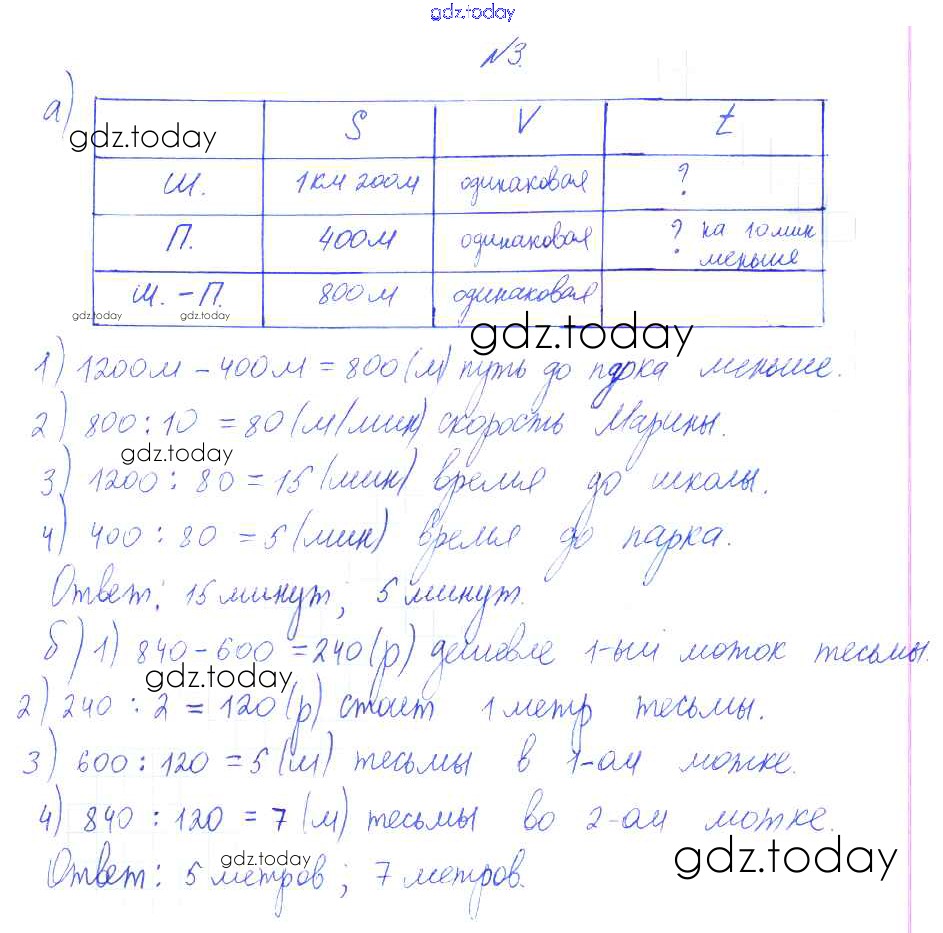 gdz.today
№3.
а)
gdz.today S V t
Ш. 1км 200м одинаковая ?
П. 400м одинаковая ? на 10мин меньше
Ш. – П. 800м одинаковая
gdz.today gdz.today
gdz.today
1) 1200м – 400м = 800(м) путь до парка меньше.
2) 800 : 10 = 80(м/мин) скорость Марины.
gdz.today
3) 1200 : 80 = 15(мин) время до школы.
4) 400 : 80 = 5(мин) время до парка.
Ответ: 15 минут; 5 минут.
б) 1) 840 – 600 = 240(р) дешевле 1-ый моток тесьмы.
gdz.today
2) 240 : 2 = 120(р) стоит 1 метр тесьмы.
3) 600 : 120 = 5(м) тесьмы в 1-ом мотке.
4) 840 : 120 = 7(м) тесьмы во 2-ом мотке.
gdz.today
gdz.today
Ответ: 5 метров; 7 метров.